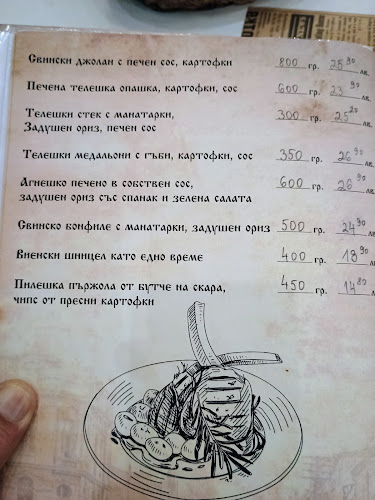 Свински джолан с печен сос, картофки 800 гр. 25.90 лв.
Печена телешка опашка, картофки, сос 600 гр. 23.90 лв.
Телешки стек с манатарки, 300 гр. 25.20 лв.
Задушен ориз, печен сос
Телешки медальони с гъби, картофки, сос 350 гр. 26.90 лв.
Агнешко печено в собствен сос, 600 гр. 28.90 лв.
задушен ориз със спанак и зелена салата
Свинско бонфиле с манатарки, задушен ориз 500 гр. 24.90 лв.
Виенски шницел като едно време 400 гр. 18.90 лв.
Пилешка пържола от бутче на скара, 450 гр. 14.80 лв.
чипс от пресни картофки